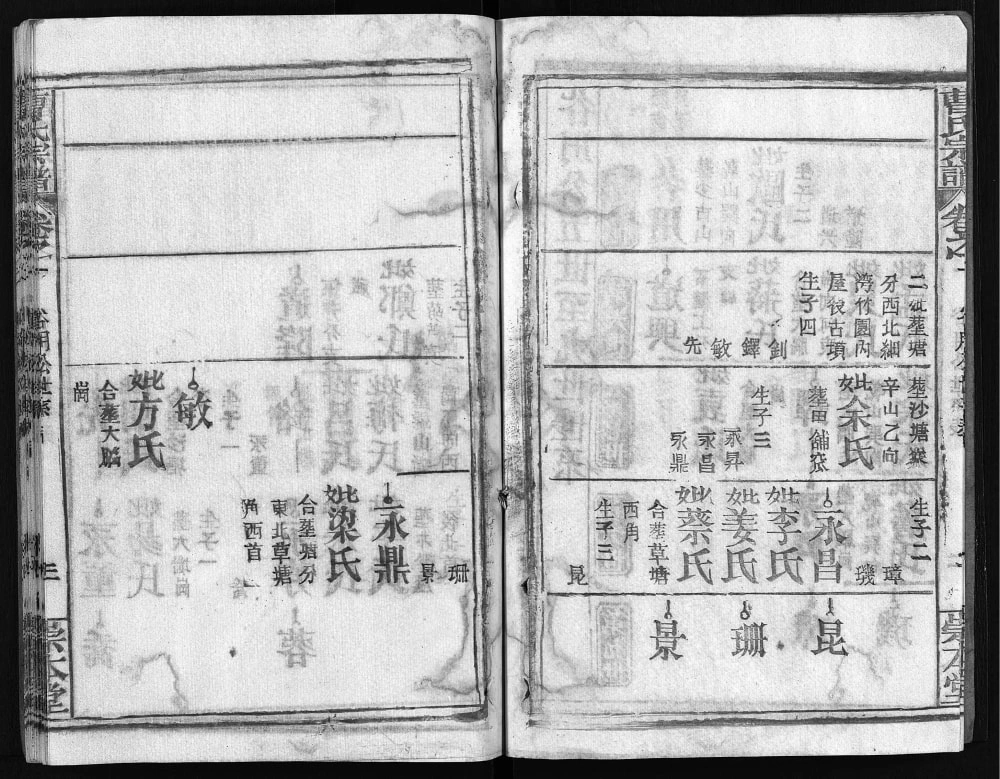 曹氏宗譜
卷之一
崇本堂
二紙塋塘
分西北細
湾竹園內
屋後古項
生子四
釗
鐸
敏
先
塋沙塘粱
辛山乙向
妣余氏
塋田舖窊
生子三
永昇
永昌
永鼎
生子二
璋
璣
永昌
妣李氏
妣姜氏
妣蔡氏
合塋草塘
西角
生子三
昆
昆
珊
景
珊
景
永鼎
妣梁氏
合塋塘分
東北草塘
角西首
敏
妣方氏
合塋大腦
崗
曹氏宗譜
卷之一
三
崇本堂